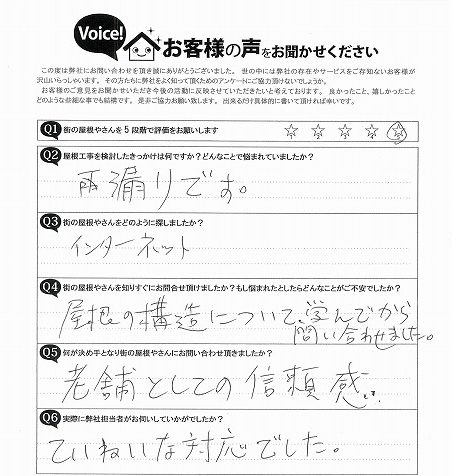 Voice!
お客様の声をお聞かせください
この度は弊社にお問い合わせを頂き誠にありがとうございました。世の中には弊社の存在やサービスをご存知ないお客様が
沢山いらっしゃいます。その方たちに弊社をよく知って頂くためのアンケートにご協力頂けないでしょうか。
お客様のご意見をお聞かせいただき今後の活動に反映させていただきたいと考えております。良かったこと、嬉しかったこと
どのような些細な事でも結構です。是非ご協力お願い致します。出来るだけ具体的に書いて頂ければ幸いです。
Q1 街の屋根やさんを5段階で評価をお願いします ☆ ☆ ☆ ☆ ☆
Q2 屋根工事を検討したきっかけは何ですか?どんなことで悩まれていましたか?
雨漏りです。
Q3 街の屋根やさんをどのように探しましたか?
インターネット
Q4 街の屋根やさんを知りすぐにお問合せ頂けましたか?もし悩まれたとしたらどんなことがご不安でしたか?
屋根の構造について、学んでから
問い合わせました。
Q5 何が決め手となり街の屋根やさんにお問い合わせ頂きましたか?
老舗としての信頼感です。
Q6 実際に弊社担当者がお伺いしていかがでしたか?
ていねいな対応でした。